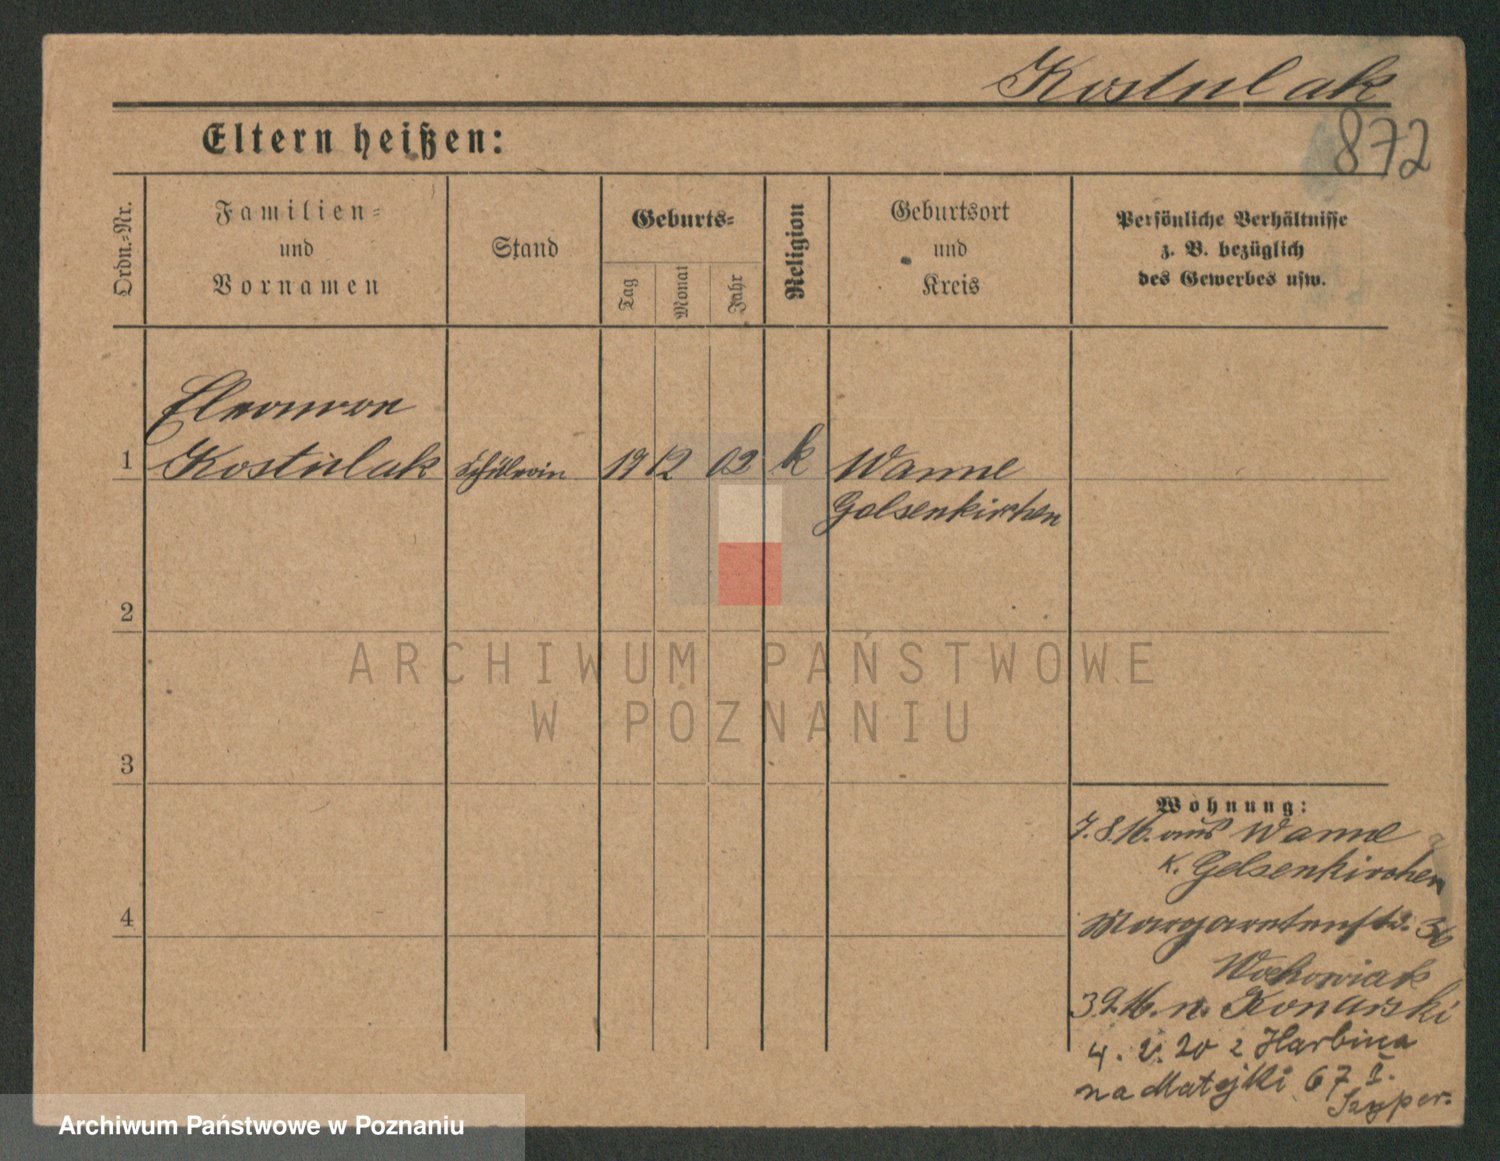 Kostulak
872
Eltern heißen:
Ordn.-Nr.
Familien-
und
Vornamen
Stand
Geburts-
Tag
Monat
Jahr
Religion
Geburtsort
und
Kreis
Persönliche Verhältnisse
z. B. bezüglich
des Gewerbes usw.
1
Eleonore
Kostulak
Schülerin
19 12 02
k
Wanne
Gelsenkirchen
2
3
4
ARCHIWUM PAŃSTWOWE
W POZNANIU
Wohnung:
7.8.16. aus Wanne
K. Gelsenkirchen
Margaretenstr. 36
3.9.16. n. Konarski
4. V. 20 z Harbina
na Matejki 67 I.
Archiwum Państwowe w Poznaniu